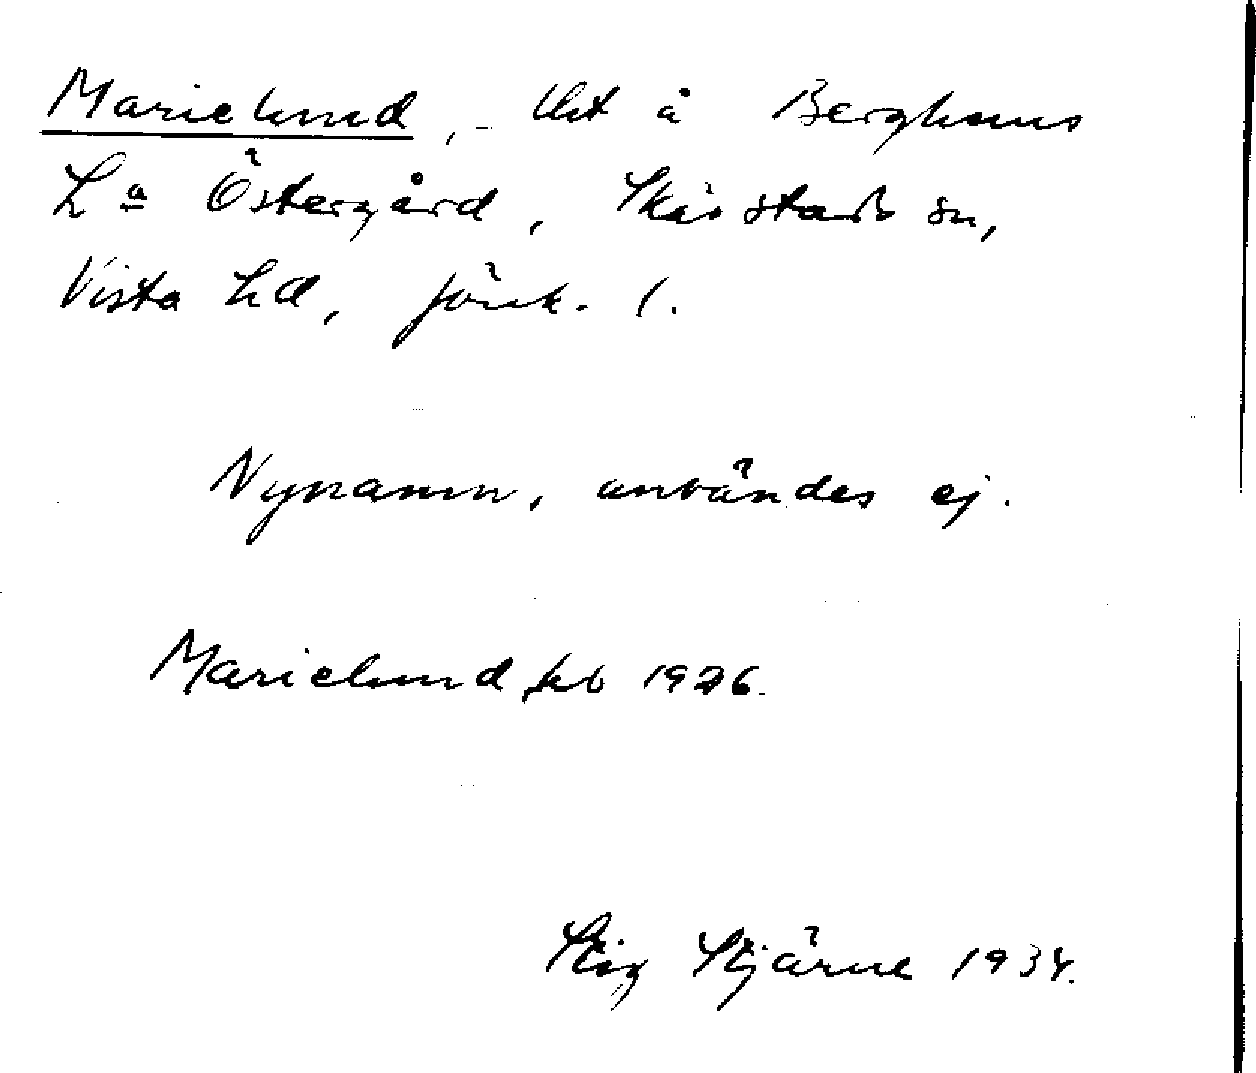 Marielund, - lht å Berghems
La Östergård, Skärstads sn,
Vista hd, Jönk. l.
Nynamn, användes ej.
Marielund, jub 1926.
Stig Stjärne 1934.